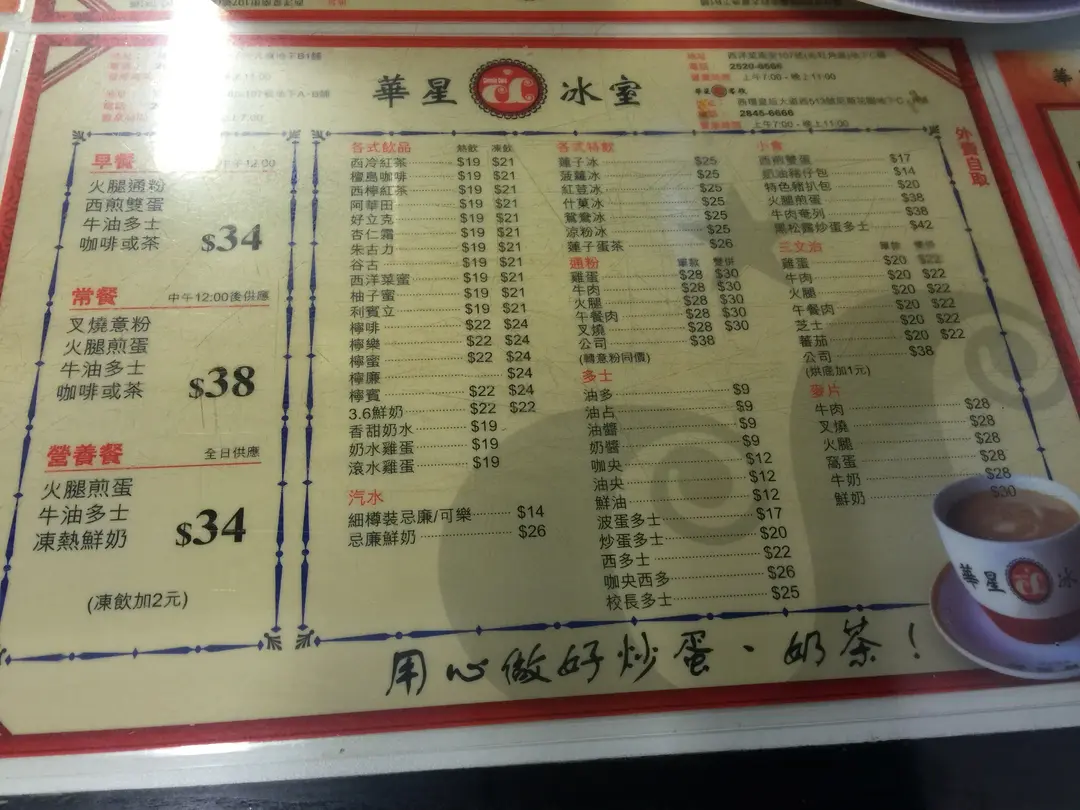 華星冰室
西洋菜南街107號
電話: 2520-6666
上午7:00 - 晚上11:00
2845-6666
上午7:00 - 晚上11:00
外賣自取
早餐
火腿通粉
西煎雙蛋
牛油多士
咖啡或茶
$34
常餐 中午12:00後供應
叉燒意粉
火腿煎蛋
牛油多士
咖啡或茶
$38
營養餐 全日供應
火腿煎蛋
牛油多士
凍熱鮮奶
$34
(凍飲加2元)
各式飲品 熱飲 凍飲
西冷紅茶 $19 $21
檀島咖啡 $19 $21
西檸紅茶 $19 $21
阿華田 $19 $21
好立克 $19 $21
杏仁霜 $19 $21
朱古力 $19 $21
谷古 $19 $21
西洋菜蜜 $19 $21
柚子蜜 $19 $21
利賓立 $19 $21
檸啡 $22 $24
檸樂 $22 $24
檸蜜 $22 $24
檸廉 $24
檸賓 $22 $24
3.6鮮奶 $22 $22
香甜奶水 $19
奶水雞蛋 $19
滾水雞蛋 $19
汽水
細樽裝忌廉/可樂 $14
忌廉鮮奶 $26
各式特飲
蓮子冰 $25
菠蘿冰 $25
紅荳冰 $25
什菓冰 $25
鴛鴦冰 $25
涼粉冰 $25
蓮子蛋茶 $26
通粉 單款 雙併
雞蛋 $28 $30
牛肉 $28 $30
火腿 $28 $30
午餐肉 $28 $30
叉燒 $28 $30
公司 $38
(轉意粉同價)
多士
油多 $9
油占 $9
油醬 $9
奶醬 $9
咖央 $12
油央 $12
鮮油 $12
波蛋多士 $17
炒蛋多士 $20
西多士 $22
咖央西多 $26
校長多士 $25
小食
西煎雙蛋 $17
奶油豬仔包 $14
特色豬扒包 $20
火腿煎蛋 $38
牛肉奄列 $38
黑松露炒蛋多士 $42
三文治 單款 雙併
雞蛋 $20 $22
牛肉 $20 $22
火腿 $20 $22
午餐肉 $20 $22
芝士 $20 $22
蕃茄 $20 $22
公司 $38
(烘底加1元)
麥片
牛肉 $28
叉燒 $28
火腿 $28
窩蛋 $28
牛奶 $28
鮮奶 $30
華星 冰
用心做好炒蛋、奶茶！